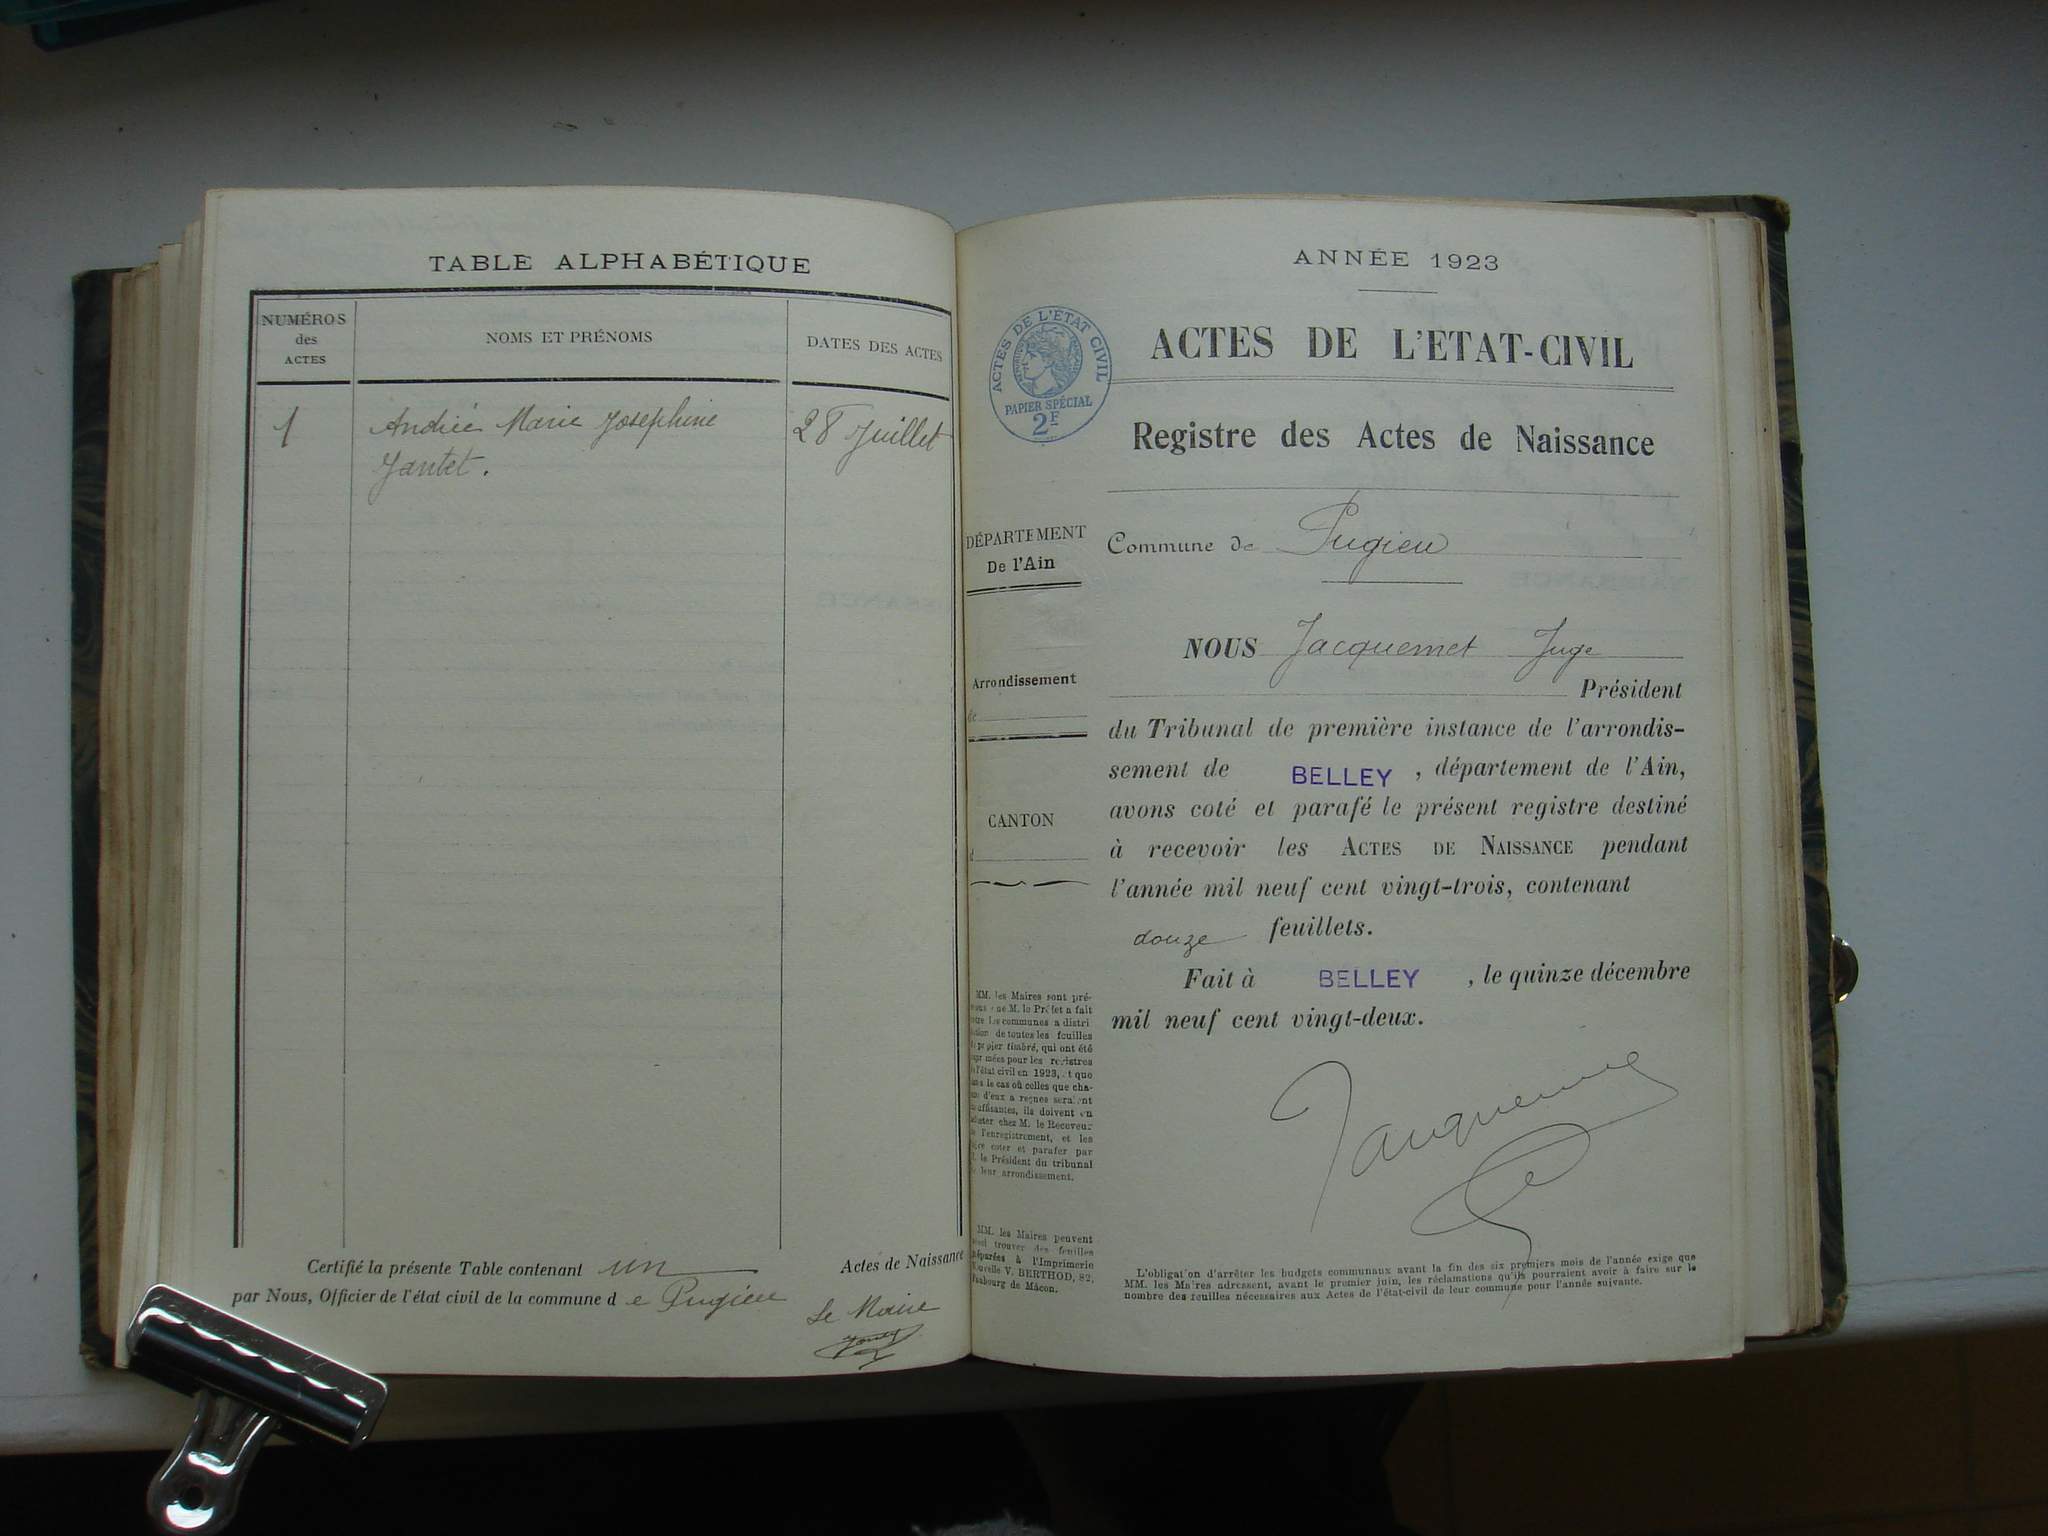 TABLE ALPHABÉTIQUE
NUMÉROS
des
ACTES
NOMS ET PRÉNOMS
DATES DES ACTES
1
Andrée Marie Josephine
Jantet.
28 Juillet
Certifié la présente Table contenant un Actes de Naissance
par Nous, Officier de l'état civil de la commune de Pugieu
Le Maire
ANNÉE 1923
ACTES DE L'ÉTAT CIVIL
PAPIER SPÉCIAL
2F
ACTES DE L'ETAT-CIVIL
Registre des Actes de Naissance
DÉPARTEMENT
De l'Ain
Arrondissement
de
CANTON
d
Commune de Pugieu
NOUS Jacquemet Juge
Président
du Tribunal de première instance de l'arrondis-
sement de BELLEY, département de l'Ain,
avons coté et parafé le présent registre destiné
à recevoir les ACTES DE NAISSANCE pendant
l'année mil neuf cent vingt-trois, contenant
douze feuillets.
Fait à BELLEY, le quinze décembre
mil neuf cent vingt-deux.
Jacquemet
MM. les Maires sont pré-
que M. le Préfet a fait
les communes a distri
de toutes les feuilles
papier timbré, qui ont été
mées pour les registres
l'état civil en 1923, et que
le cas où celles que cha-
d'eux a reçues seraient
ils doivent en
chez M. le Receveur
l'enregistrement, et les
coter et parafer par
le Président du tribunal
leur arrondissement.
MM. les Maires peuvent
trouver des feuilles
préparées à l'Imprimerie
Nouvelle V. BERTHOD, 82,
Faubourg de Mâcon.
L'obligation d'arrêter les budgets communaux avant la fin des six premiers mois de l'année exige que
MM. les Maires adressent, avant le premier juin, les réclamations qu'ils pourraient avoir à faire sur le
nombre des feuilles nécessaires aux Actes de l'état-civil de leur commune pour l'année suivante.